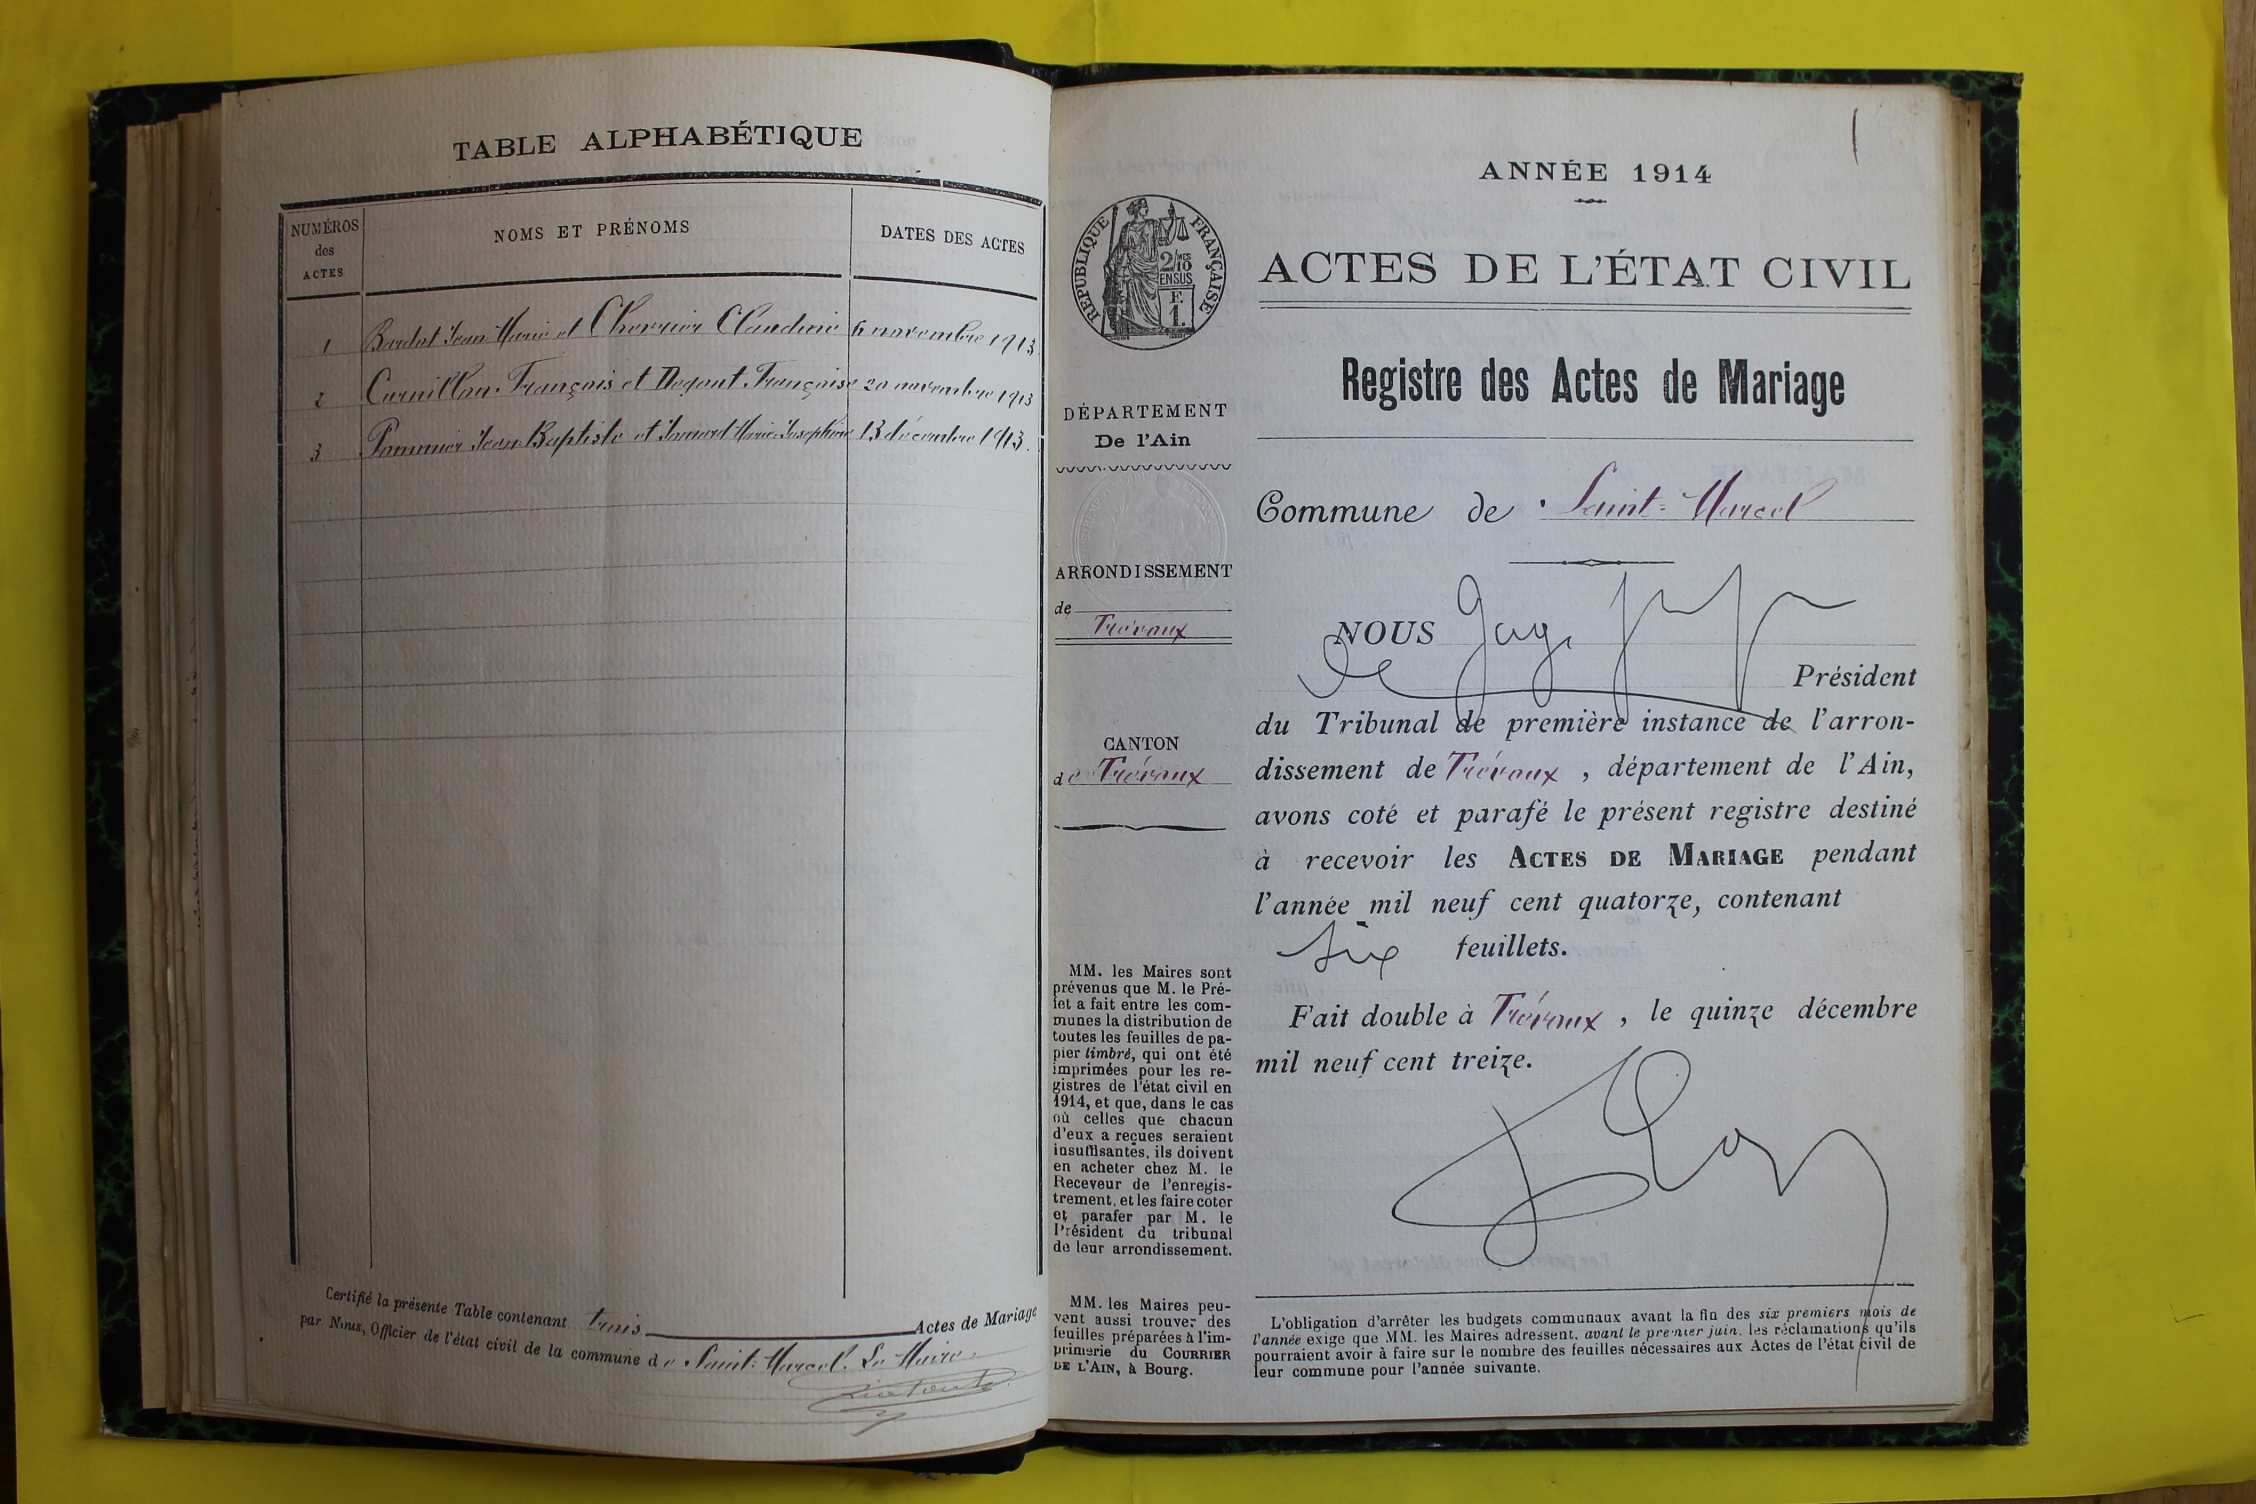 TABLE ALPHABÉTIQUE
NUMÉROS
des
ACTES
NOMS ET PRÉNOMS
DATES DES ACTES
1 Bardet Jean Marie et Cherrier Claudine 6 novembre 1913
2 Curnillon François et Degout Françoise 20 novembre 1913
3 Pommier Jean-Baptiste et Marie-Joséphine 13 décembre 1913.
Certifié la présente Table contenant trois Actes de Mariage
par Nous, Officier de l'état civil de la commune de Saint-Marcel. Le Maire
1
ANNÉE 1914
RÉPUBLIQUE FRANÇAISE
2/10
MES
EN SUS
F.
1.
ACTES DE L'ÉTAT CIVIL
Registre des Actes de Mariage
DÉPARTEMENT
De l'Ain
Commune de Saint-Marcel
ARRONDISSEMENT
de
Trévoux
NOUS
Président
du Tribunal de première instance de l'arron-
dissement de Trévoux, département de l'Ain,
avons coté et parafé le présent registre destiné
à recevoir les ACTES DE MARIAGE pendant
l'année mil neuf cent quatorze, contenant
six feuillets.
Fait double à Trévoux, le quinze décembre
mil neuf cent treize.
CANTON
de Trévoux
MM. les Maires sont
prévenus que M. le Pré-
fet a fait entre les com-
munes la distribution de
toutes les feuilles de pa-
pier timbré, qui ont été
imprimées pour les re-
gistres de l'état civil en
1914, et que, dans le cas
où celles que chacun
d'eux a reçues seraient
insuffisantes, ils doivent
en acheter chez M. le
Receveur de l'enregis-
trement, et les faire coter
et parafer par M. le
Président du tribunal
de leur arrondissement.
MM. les Maires peu-
vent aussi trouver des
feuilles préparées à l'im-
primerie du COURRIER
DE L'AIN, à Bourg.
L'obligation d'arrêter les budgets communaux avant la fin des six premiers mois de
l'année exige que MM. les Maires adressent, avant le premier juin, les réclamations qu'ils
pourraient avoir à faire sur le nombre des feuilles nécessaires aux Actes de l'état civil de
leur commune pour l'année suivante.